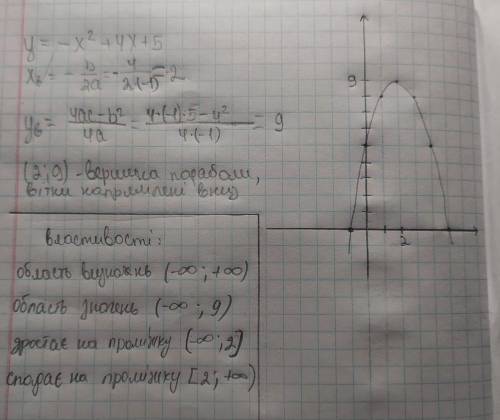 y = -x² + 4x + 5
xв = -b/2a = -4/2·(-1) = 2
yв = 4ac-b²/4a = 4·(-1)·5-4²/4·(-1) = 9
(2;9) - вершина параболи,
вітки напрямлені вниз
Властивості:
область визначень (-∞; +∞)
область значень (-∞; 9)
зростає на проміжку (-∞; 2]
спадає на проміжку [2; +∞)
9
2